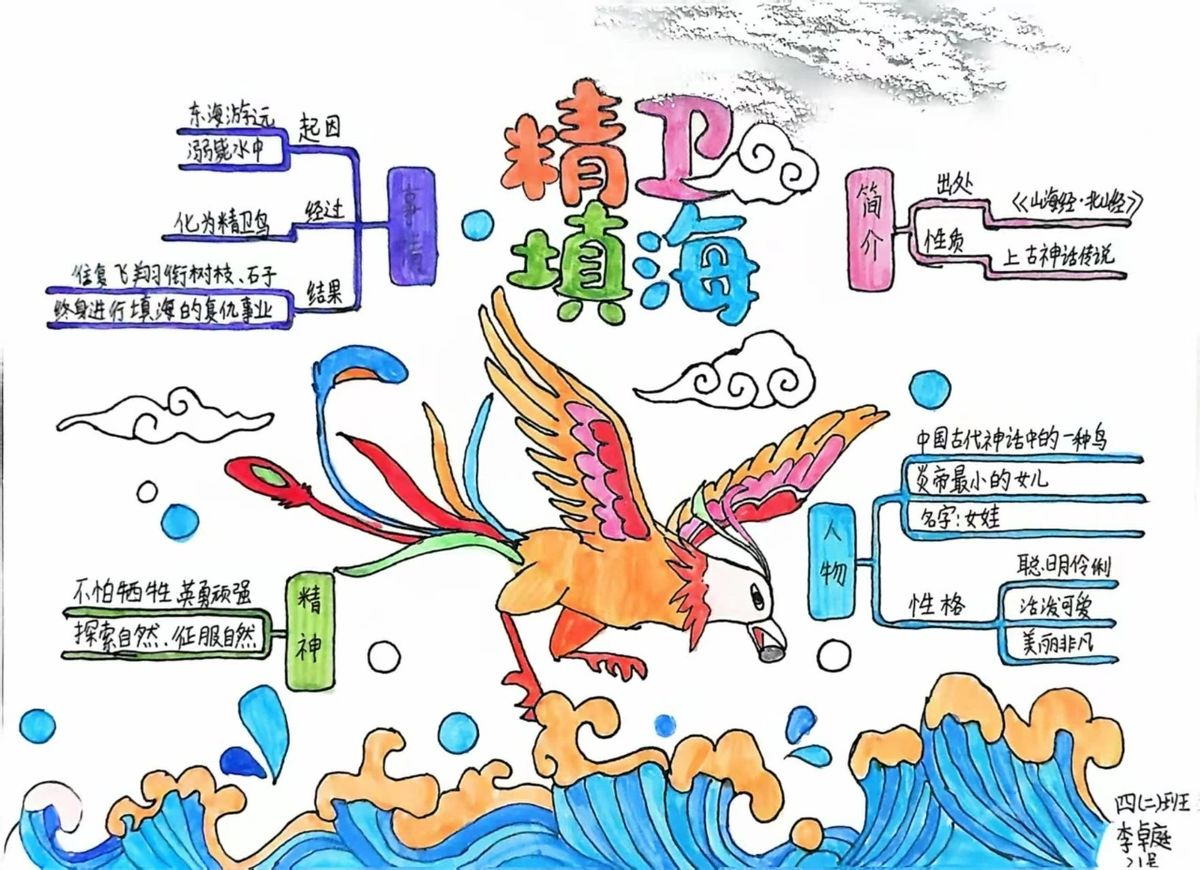 精卫
填海
事情
起因
东海游远
溺毙水中
经过
化为精卫鸟
结果
往复飞翔衔树枝、石子
终身进行填海的复仇事业
简介
出处
《山海经·北山经》
性质
上古神话传说
人物
中国古代神话中的一种鸟
炎帝最小的女儿
名字:女娃
性格
聪明伶俐
活泼可爱
美丽非凡
精神
不怕牺牲 英勇顽强
探索自然、征服自然
四(二)班
李卓庭
21号